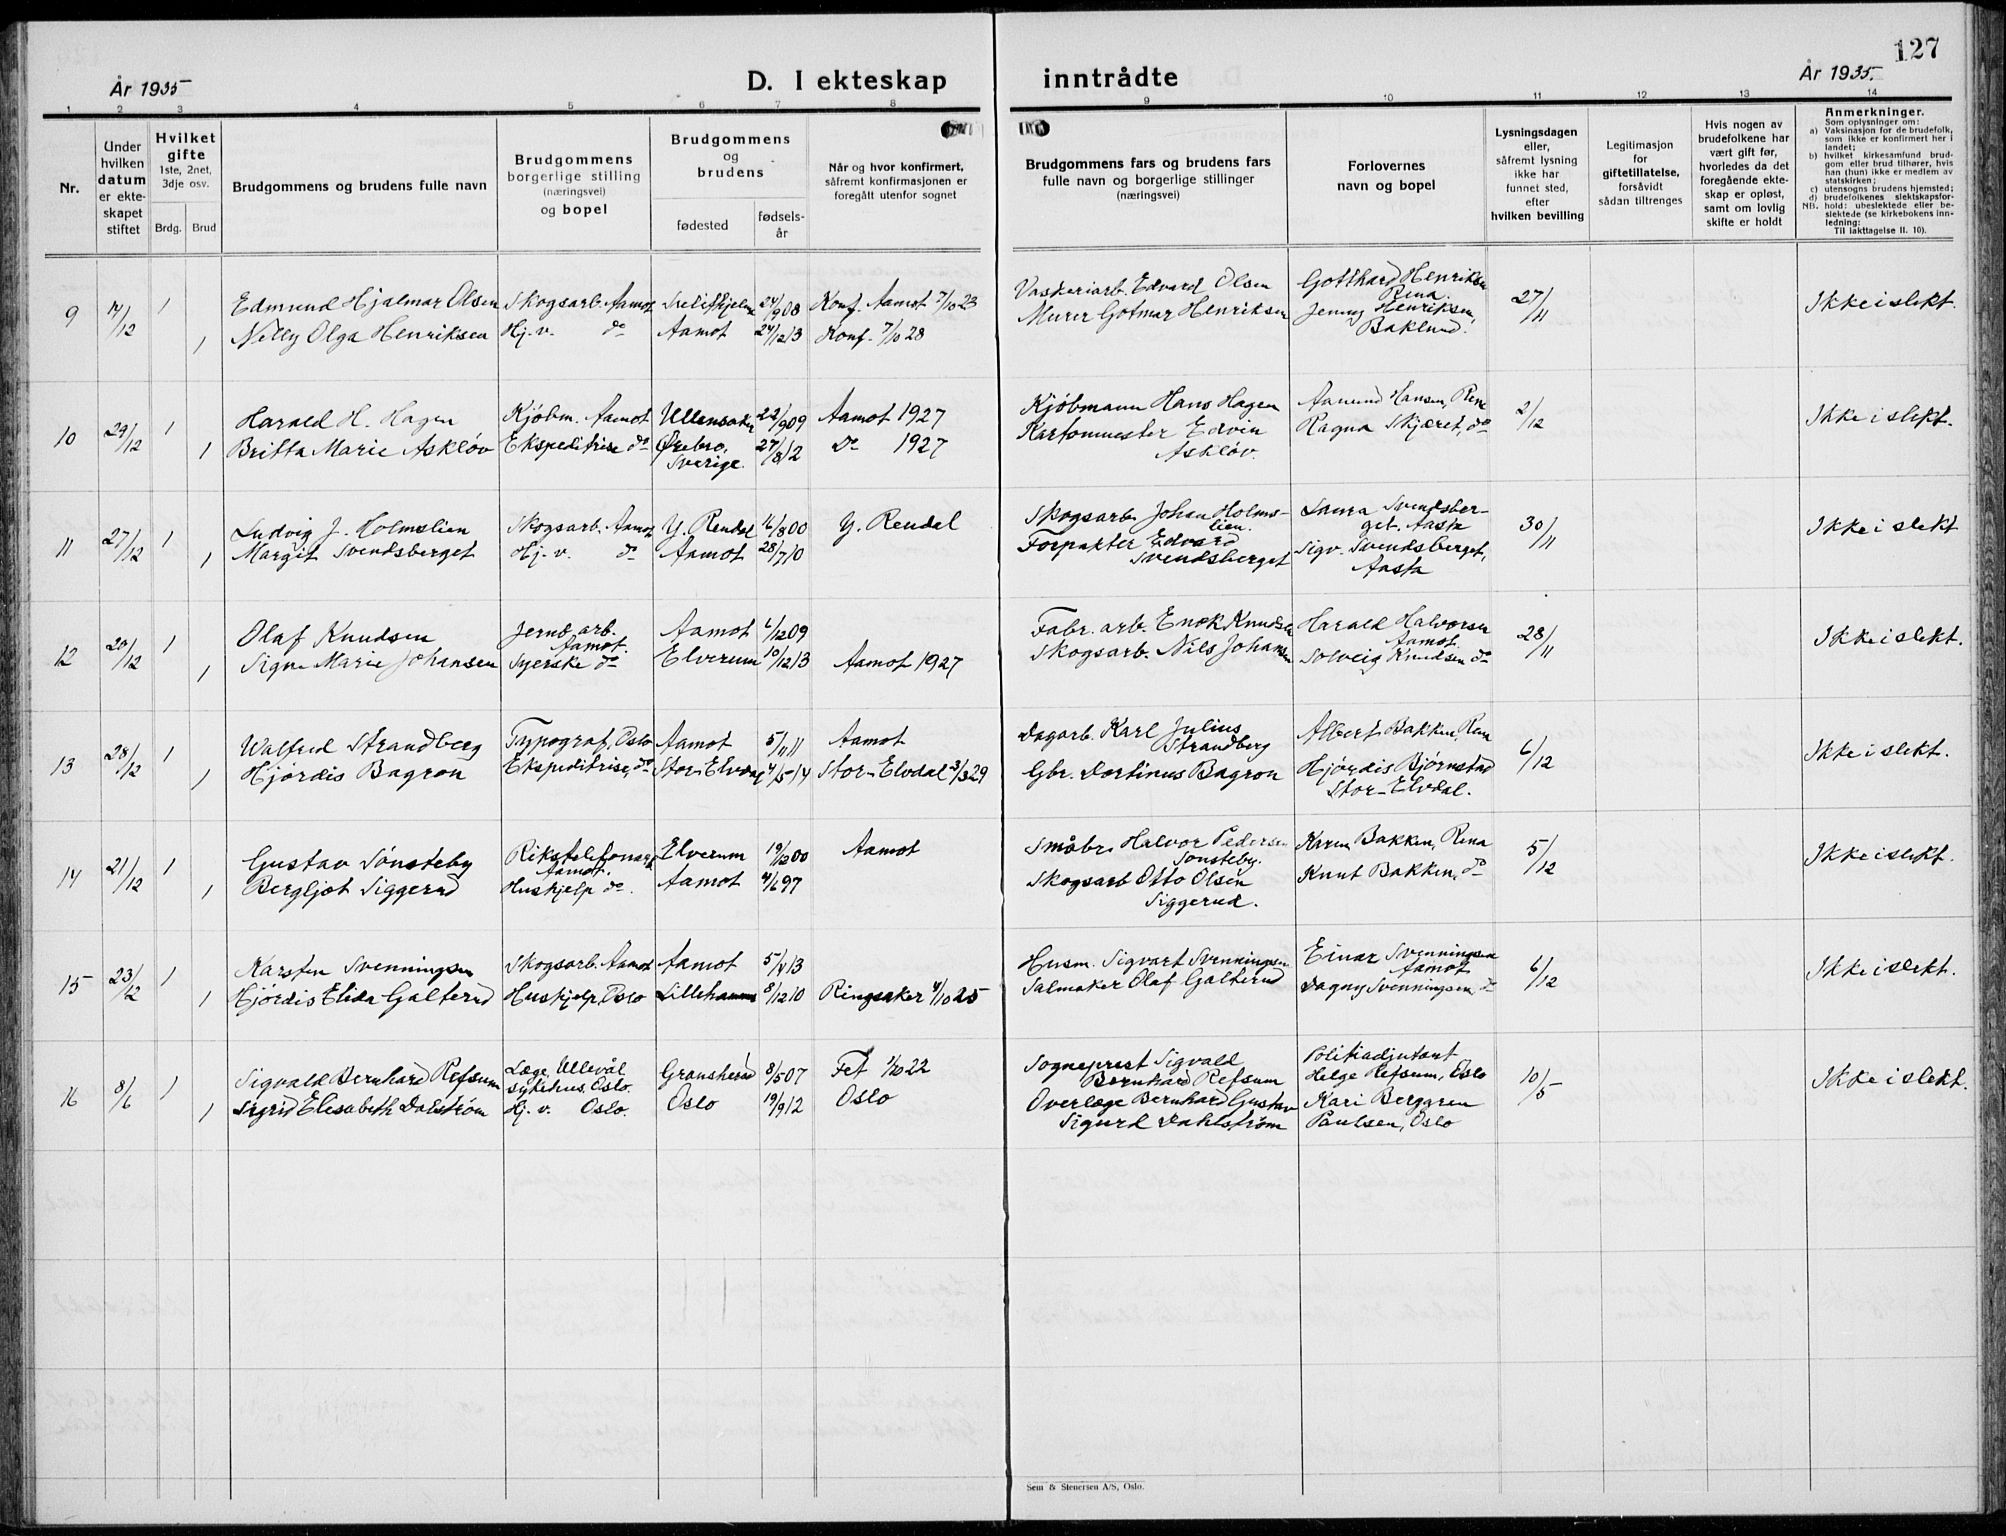 127
År 1935
D. I ekteskap inntrådte
År 1935.
1 2 3 4 5 6 7 8 9 10 11 12 13 14
Nr.
Under
hvilken
datum
er ekte-
skapet
stiftet
Hvilket
gifte
1ste, 2net,
3dje osv.
Brdg. Brud
Brudgommens og brudens fulle navn
Brudgommens
borgerlige stilling
(næringsvei)
og bopel
Brudgommens
og
brudens
fødested
fødsels-
år
Når og hvor konfirmert,
såfremt konfirmasjonen er
foregått utenfor sognet
Brudgommens fars og brudens fars
fulle navn og borgerlige stillinger
(næringsvei)
Forlovernes
navn og bopel
Lysningsdagen
eller,
såfremt lysning
ikke har
funnet sted,
efter
hvilken bevilling
Legitimasjon
for
giftetillatelse,
forsåvidt
sådan tiltrenges
Hvis nogen av
brudefolkene har
vært gift før,
hvorledes da det
foregående ekte-
skap er opløst,
samt om lovlig
skifte er holdt
Anmerkninger.
Som oplysninger om:
a) Vaksinasjon for de brudefolk,
som ikke er konfirmert her i
landet;
b) hvilket kirkesamfund brud-
gom eller brud tilhører, hvis
han (hun) ikke er medlem av
statskirken;
c) utensogns brudens hjemsted;
d) brudefolkenes slektskapsfor-
NB. hold: ubeslektede eller be-
slektede (se kirkebokens inn-
ledning:
Til Iakttagelse II. 10).
9 14/12 1 Edmund Hjalmar Olsen Skogsarb. Aamot 24/9 08 Konf. Aamot 7/10 23 Vaskeriarb. Edvard Olsen Gotthard Henriksen Rena. 27/11 Ikke i slekt.
1 Nelly Olga Henriksen Hj. v. do Aamot 24/12 13 Konf. 7/10 28 Murer Gotmar Henriksen Jenny Henriksen, Baklund.
10 29/12 1 Harald H. Hagen Kjøbm. Aamot Ullensaker 22/9 09 Aamot 1927 Kjøbmann Hans Hagen Aamund Hansen, Rena 2/12 Ikke i slekt.
1 Britta Marie Askløv Ekspeditrise do Ørebro, Sverige. 27/8 12 Do 1927 Kartonmester Edvin Askløv. Ragna Skjæret, do
11 27/12 1 Ludvig J. Holmslien Skogsarb. Aamot Y. Rendal 16/8 00 Y. Rendal Skogsarb. Johan Holmslien. Laura Svendsberget. Aasta 30/11 Ikke i slekt
1 Margit Svendsberget Hj. v. do Aamot 28/7 10 Forpakter Edvard Svendsberget Sigv. Svendsberget, Aasta
12 20/12 1 Olaf Knudsen Jernb. arb. Aamot. Aamot 6/12 09 Fabr. arb. Enok Knudsen Harald Halvorsen Aamot. 28/11 Ikke i slekt.
1 Signe Marie Johansen Syerske do Elverum 10/12 13 Aamot 1927 Skogsarb. Nils Johansen Solveig Knudsen do
13 28/12 1 Walfred Strandberg Typograf, Oslo Aamot 5/11 11 Aamot Dagarb. Karl Julius Strandberg Albert Bakken, Rena 6/12 Ikke i slekt.
1 Hjørdis Bagron Ekspeditrise, do Stor-Elvdal 4/5 14 Stor-Elvdal 3/3 29 Gbr. Dortinus Bagron Hjørdis Bjørnstad Stor-Elvdal.
14 21/12 1 Gustav Sønsteby Rikstelefonarb. Aamot. Elverum 19/12 00 Aamot Småbr. Halvor Pedersen Sønsteby. Karen Bakken, Rena 5/12 Ikke i slekt.
1 Bergljot Siggerud Huskjelp do. Aamot 4/6 97 Skogsarb Otto Olsen Siggerud. Knut Bakken, do
15 23/12 1 Karsten Svenningsen Skogsarb. Aamot Aamot 5/4 13 Husm. Sigvart Svenningsen Einar Svenningsen Aamot 6/12 Ikke i slekt.
1 Hjørdis Elida Galterud Huskjelp, Oslo Lillehammer 8/12 10 Ringsaker 4/10 25 Salmaker Olaf Galterud Dagny Svenningsen, do
16 8/6 1 Sigvald Bernhard Refsum Læge, Ullevål sykehus, Oslo. Gransherad 8/5 07 Fet 1/10 22 Sogneprest Sigvald Bernhard Refsum Politiadjutant Helge Refsum, Oslo 10/5 Ikke i slekt.
1 Sigrid Elisabeth Dalstrøm Hj. v. Oslo. Oslo 19/9 12 Oslo Overlæge Bernhard Gustav Sigurd Dahlstrøm Kari Berggren Paulsen, Oslo
Sem & Stenersen A/S, Oslo.